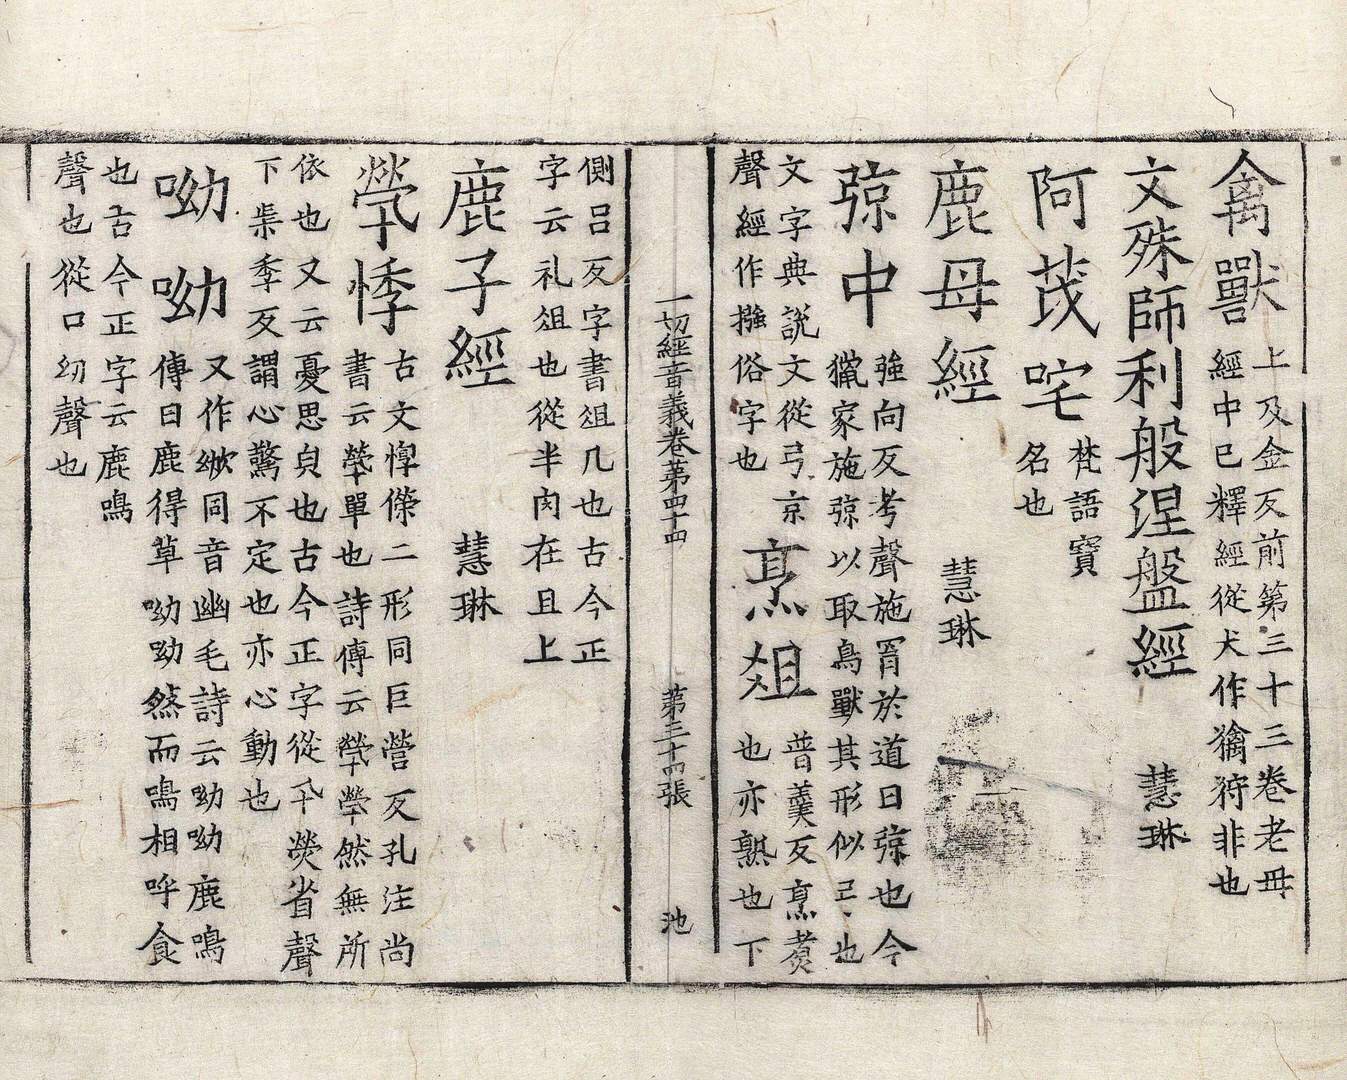 禽獸
上及金反前第三十三卷老毋
經中已釋經從犬作㺀狩非也
文殊師利般涅盤經 慧琳
阿茂咤
梵語寶
名也
鹿母經 慧琳
弶中
強向反考聲施罥於道曰弶也今
獵家施弶以取鳥獸其形似弓也
文字典說文從弓京
聲經作摾俗字也
烹俎
普羹反烹煑
也亦熟也下
一切經音義卷第四十四 第三十四張 池
側呂反字書俎几也古今正
字云礼俎也從半肉在且上
鹿子經 慧琳
煢悸
古文惸㒍二形同巨營反孔注尚
書云煢單也詩傳云煢煢然無所
依也又云憂思皃也古今正字從卂熒省聲
下葵季反謂心驚不定也亦心動也
呦呦
又作㕭同音幽毛詩云呦呦鹿鳴
傳曰鹿得草呦呦然而鳴相呼食
也古今正字云鹿鳴
聲也從口幼聲也